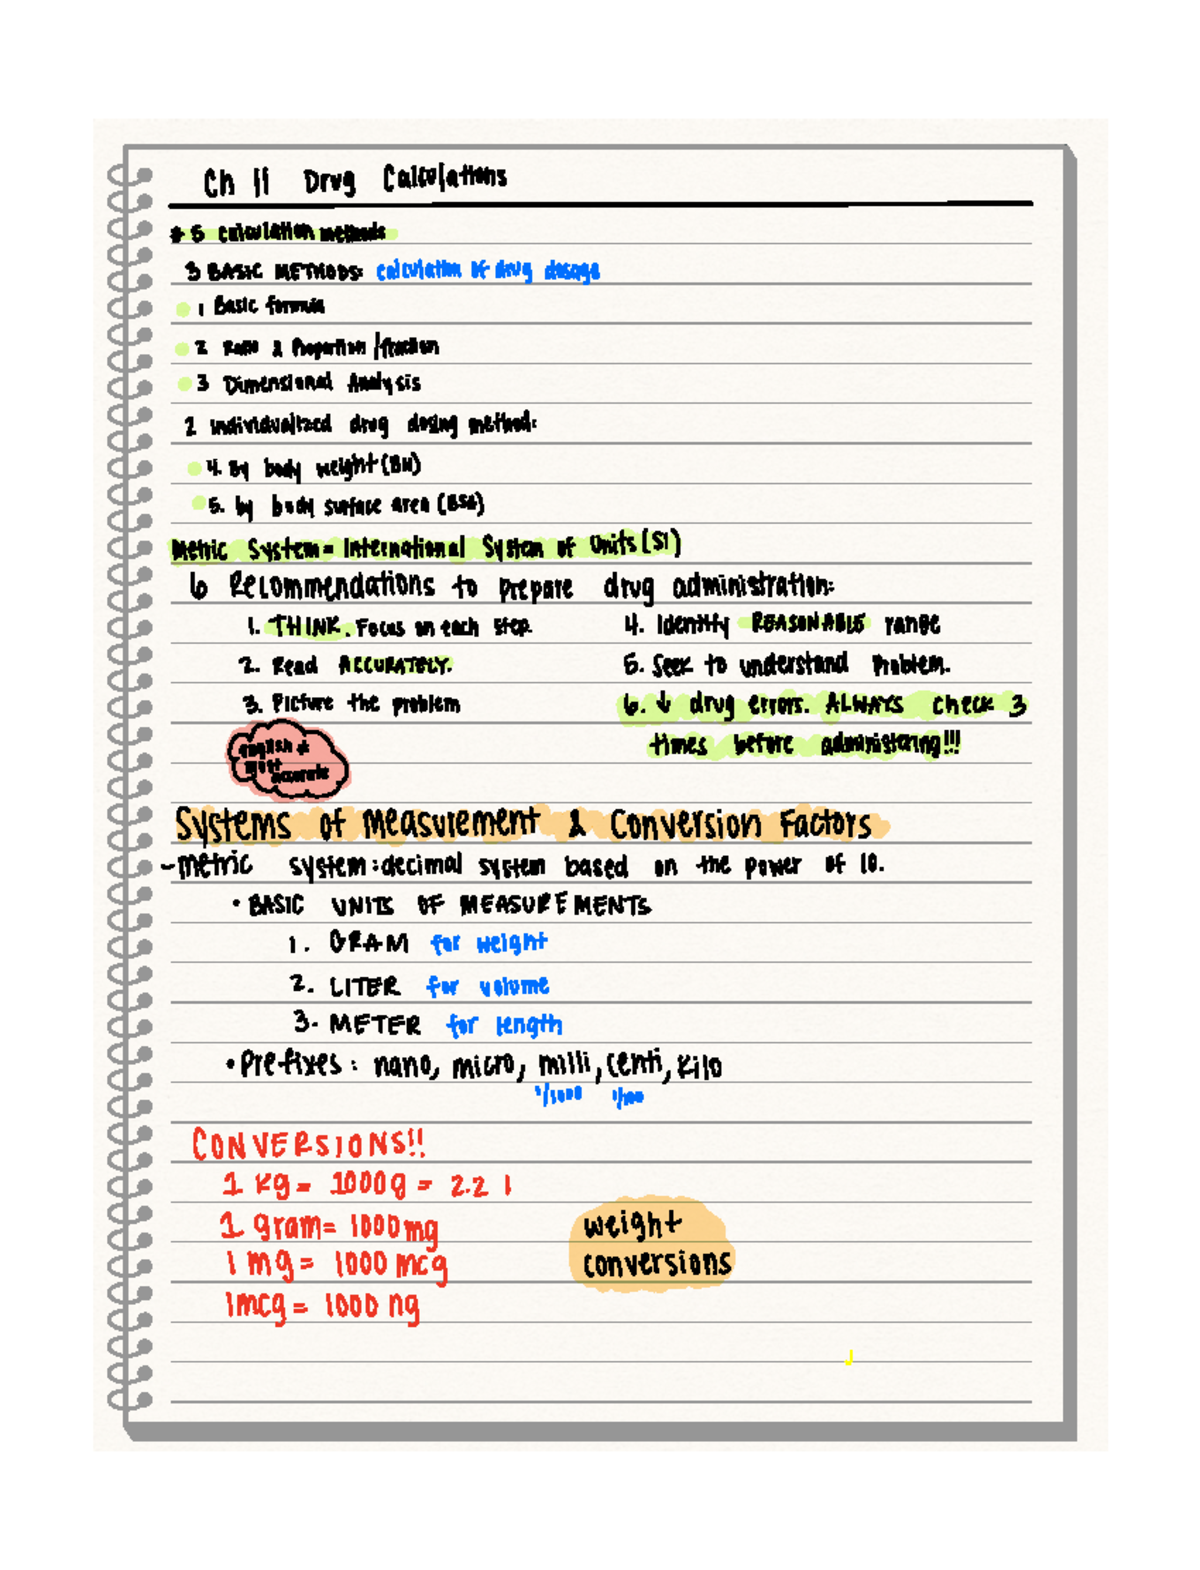 Ch 11 Drug Calculations
* 5 calculation methods
3 BASIC METHODS: calculation of drug dosage
1 Basic formula
2 Ratio & Proportion/fraction
3 Dimensional Analysis
2 individualized drug dosing method:
4. By body weight (BW)
5. by body surface area (BSA)
Metric System = International System of Units (SI)
6 Recommendations to prepare drug administration:
1. THINK. Focus on each step.
2. Read ACCURATELY.
3. Picture the problem
4. Identify REASONABLE range
5. Seek to understand Problem.
6. ↓ drug errors. ALWAYS check 3
times before administering!!!
english
most
accurate
Systems of Measurement & Conversion Factors
- metric system: decimal system based on the power of 10.
• BASIC UNITS OF MEASUREMENTS
1. GRAM for weight
2. LITER for volume
3. METER for length
• Prefixes: nano, micro, milli, centi, kilo
1/1000 1/100
CONVERSIONS!!
1 kg = 1000g = 2.2 l
1 gram = 1000mg
1 mg = 1000 mcg
1mcg = 1000 ng
weight
conversions